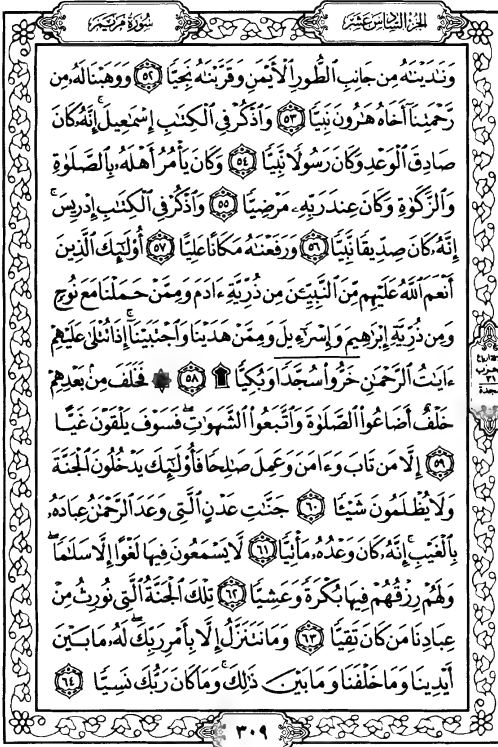 سورة مريم
الجزء السادس عشر
وَنَٰدَيْنَٰهُ مِن جَانِبِ ٱلطُّورِ ٱلْأَيْمَنِ وَقَرَّبْنَٰهُ نَجِيًّا ٥٢ وَوَهَبْنَا لَهُۥ مِن
رَّحْمَتِنَآ أَخَاهُ هَٰرُونَ نَبِيًّا ٥٣ وَٱذْكُرْ فِي ٱلْكِتَٰبِ إِسْمَٰعِيلَ ۚ إِنَّهُۥ كَانَ
صَادِقَ ٱلْوَعْدِ وَكَانَ رَسُولًا نَّبِيًّا ٥٤ وَكَانَ يَأْمُرُ أَهْلَهُۥ بِٱلصَّلَوٰةِ
وَٱلزَّكَوٰةِ وَكَانَ عِندَ رَبِّهِۦ مَرْضِيًّا ٥٥ وَٱذْكُرْ فِي ٱلْكِتَٰبِ إِدْرِيسَ ۚ
إِنَّهُۥ كَانَ صِدِّيقًا نَّبِيًّا ٥٦ وَرَفَعْنَٰهُ مَكَانًا عَلِيًّا ٥٧ أُو۟لَٰٓئِكَ ٱلَّذِينَ
أَنْعَمَ ٱللَّهُ عَلَيْهِم مِّنَ ٱلنَّبِيِّـۧنَ مِن ذُرِّيَّةِ ءَادَمَ وَمِمَّنْ حَمَلْنَا مَعَ نُوحٍ
وَمِن ذُرِّيَّةِ إِبْرَٰهِيمَ وَإِسْرَٰٓءِيلَ وَمِمَّنْ هَدَيْنَا وَٱجْتَبَيْنَآ ۚ إِذَا تُتْلَىٰ عَلَيْهِمْ
ءَايَٰتُ ٱلرَّحْمَٰنِ خَرُّوا۟ سُجَّدًا وَبُكِيًّا ۩ ٥٨ ۞ فَخَلَفَ مِنۢ بَعْدِهِمْ
خَلْفٌ أَضَاعُوا۟ ٱلصَّلَوٰةَ وَٱتَّبَعُوا۟ ٱلشَّهَوَٰتِ ۖ فَسَوْفَ يَلْقَوْنَ غَيًّا
٥٩ إِلَّا مَن تَابَ وَءَامَنَ وَعَمِلَ صَٰلِحًا فَأُو۟لَٰٓئِكَ يَدْخُلُونَ ٱلْجَنَّةَ
وَلَا يُظْلَمُونَ شَيْـًٔا ٦٠ جَنَّٰتِ عَدْنٍ ٱلَّتِي وَعَدَ ٱلرَّحْمَٰنُ عِبَادَهُۥ
بِٱلْغَيْبِ ۚ إِنَّهُۥ كَانَ وَعْدُهُۥ مَأْتِيًّا ٦١ لَّا يَسْمَعُونَ فِيهَا لَغْوًا إِلَّا سَلَٰمًا ۖ
وَلَهُمْ رِزْقُهُمْ فِيهَا بُكْرَةً وَعَشِيًّا ٦٢ تِلْكَ ٱلْجَنَّةُ ٱلَّتِي نُورِثُ مِنْ
عِبَادِنَا مَن كَانَ تَقِيًّا ٦٣ وَمَا نَتَنَزَّلُ إِلَّا بِأَمْرِ رَبِّكَ ۖ لَهُۥ مَا بَيْنَ
أَيْدِينَا وَمَا خَلْفَنَا وَمَا بَيْنَ ذَٰلِكَ ۚ وَمَا كَانَ رَبُّكَ نَسِيًّا ٦٤
حزب
٣١
سجدة
٣٠٩